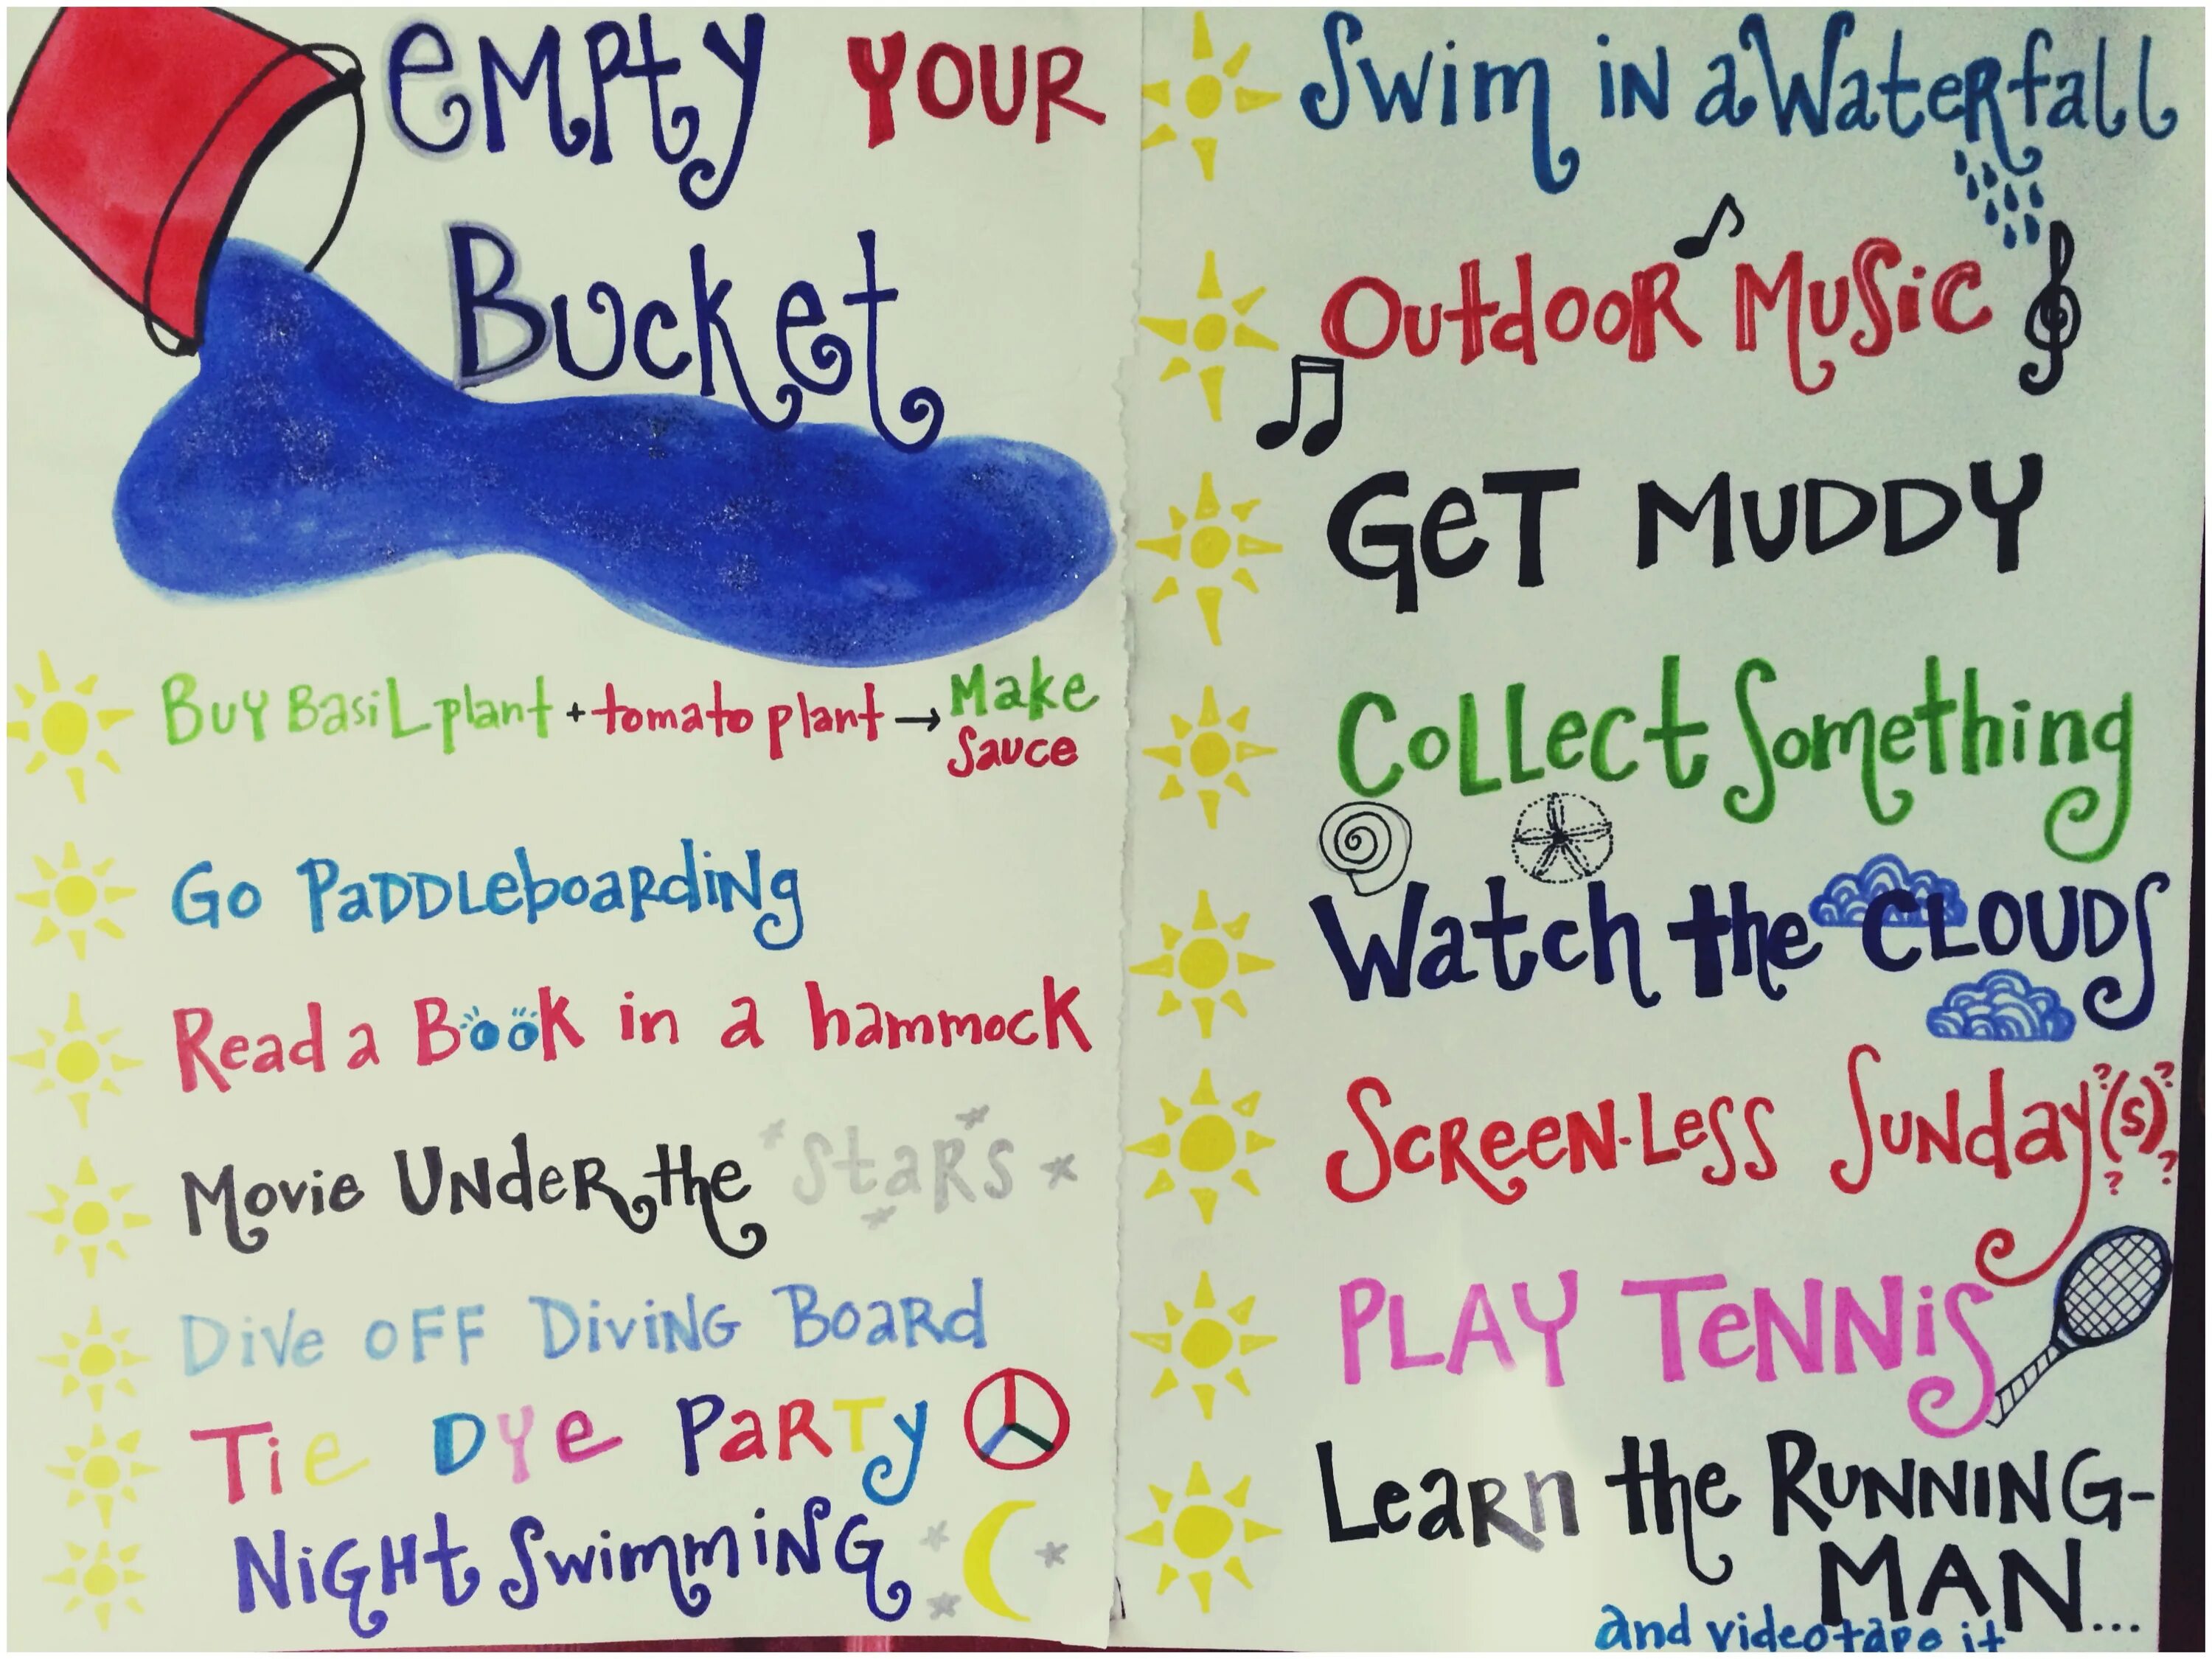 EMPty YOUR
BuckET
BuY BasiL plant + tomato plant → Make
Sauce
Go PaDDLeboaRdiNg
Read a BooK in a hammocK
Movie UNdeR the StaRs
Dive oFF DiviNG BoaRd
Tie DYe PaRTy
NiGHt SwimmiNG
Swim iN a WateRfall
OutdooR MuSic
GeT MuDDY
CoLLect Something
Watch the CLOUDS
ScReeN-Less SuNday(s)????
PLAY TeNNiS
LeaRn the RuNNiNG-
MAN...
and videotape it